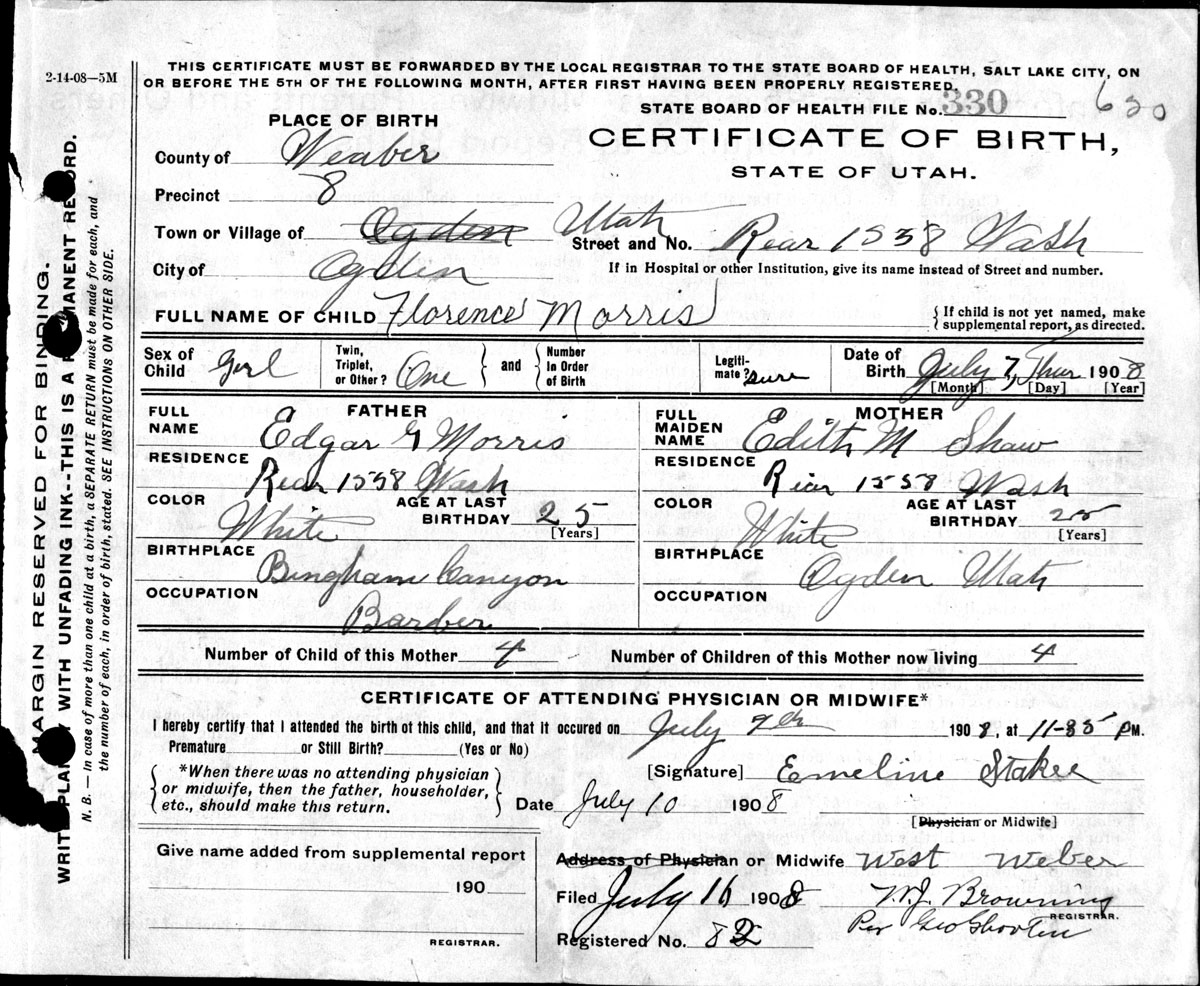 2-14-08—5M
THIS CERTIFICATE MUST BE FORWARDED BY THE LOCAL REGISTRAR TO THE STATE BOARD OF HEALTH, SALT LAKE CITY, ON
OR BEFORE THE 5TH OF THE FOLLOWING MONTH, AFTER FIRST HAVING BEEN PROPERLY REGISTERED.
STATE BOARD OF HEALTH FILE No. 330 630
PLACE OF BIRTH
CERTIFICATE OF BIRTH,
STATE OF UTAH.
County of Weaber
Precinct 8
Town or Village of Ogden Utah
Street and No. Rear 1538 Wash
City of Ogden
If in Hospital or other Institution, give its name instead of Street and number.
FULL NAME OF CHILD Florence Morris
{ If child is not yet named, make
supplemental report, as directed.
Sex of Child Girl
Twin, Triplet, or Other? One
and
Number In Order of Birth
Legitimate? sure
Date of Birth July 7, Thur 1908
[Month] [Day] [Year]
FATHER
FULL NAME Edgar G Morris
RESIDENCE Rear 1538 Wash
COLOR White
AGE AT LAST BIRTHDAY 25
[Years]
BIRTHPLACE Bingham Canyon
OCCUPATION Barber
MOTHER
FULL MAIDEN NAME Edith M Shaw
RESIDENCE Rear 1558 Wash
COLOR White
AGE AT LAST BIRTHDAY 25
[Years]
BIRTHPLACE Ogden Utah
OCCUPATION
Number of Child of this Mother 4
Number of Children of this Mother now living 4
CERTIFICATE OF ATTENDING PHYSICIAN OR MIDWIFE*
I hereby certify that I attended the birth of this child, and that it occured on July 7th 1908, at 11-35 PM.
Premature or Still Birth? (Yes or No)
*When there was no attending physician
or midwife, then the father, householder,
etc., should make this return.
[Signature] Emeline Staker
Date July 10 1908
[Physician or Midwife]
Give name added from supplemental report
190
REGISTRAR.
Address of Physician or Midwife West Weber
Filed July 16 1908 W.J. Browning
REGISTRAR.
Per Geo
Registered No. 82
MARGIN RESERVED FOR BINDING.
WRITE PLAINLY WITH UNFADING INK--THIS IS A PERMANENT RECORD.
N. B. — In case of more than one child at a birth, a SEPARATE RETURN must be made for each, and
the number of each, in order of birth, stated. SEE INSTRUCTIONS ON OTHER SIDE.